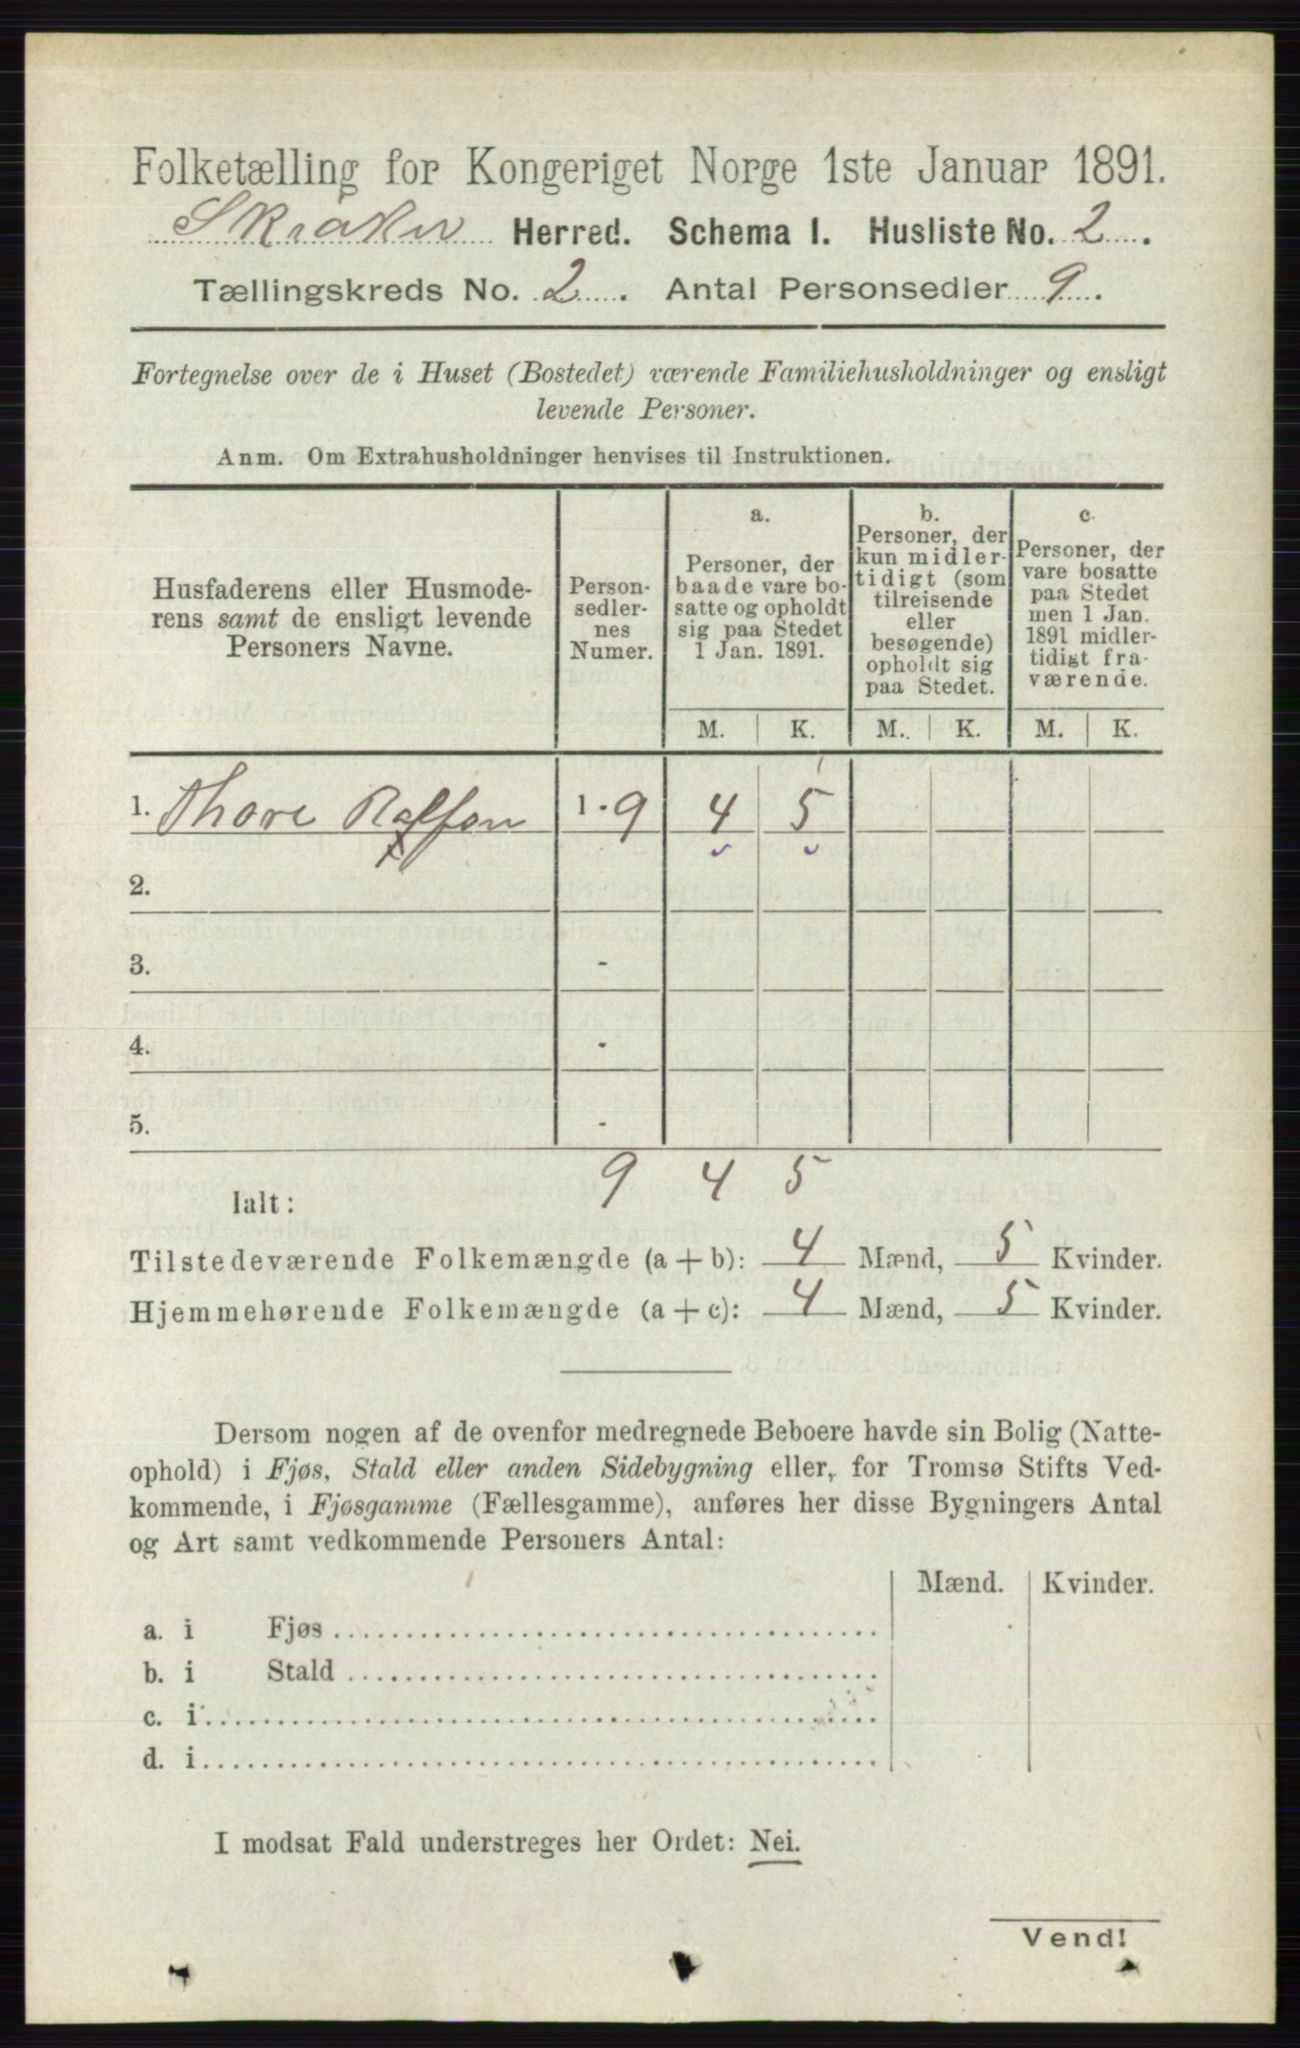 Folketælling for Kongeriget Norge 1ste Januar 1891.
Skiaker Herred. Schema I. Husliste No. 2.
Tællingskreds No. 2. Antal Personsedler 9.
Fortegnelse over de i Huset (Bostedet) værende Familiehusholdninger og ensligt
levende Personer.
Anm. Om Extrahusholdninger henvises til Instruktionen.
Husfaderens eller Husmode-
rens samt de ensligt levende
Personers Navne.
Person-
sedler-
nes
Numer.
a.
Personer, der
baade vare bo-
satte og opholdt
sig paa Stedet
1 Jan. 1891.
b.
Personer, der
kun midler-
tidigt (som
tilreisende
eller
besøgende)
opholdt sig
paa Stedet.
c.
Personer, der
vare bosatte
paa Stedet
men 1 Jan.
1891 midler-
tidigt fra-
værende.
M. K. M. K. M. K.
1. Thore 1-9 4 5
2.
3. -
4. -
5. -
Ialt: 9 4 5
Tilstedeværende Folkemængde (a + b): 4 Mænd, 5 Kvinder.
Hjemmehørende Folkemængde (a + c): 4 Mænd, 5 Kvinder.
Dersom nogen af de ovenfor medregnede Beboere havde sin Bolig (Natte-
ophold) i Fjøs, Stald eller anden Sidebygning eller, for Tromsø Stifts Ved-
kommende, i Fjøsgamme (Fællesgamme), anføres her disse Bygningers Antal
og Art samt vedkommende Personers Antal:
Mænd. Kvinder.
a. i Fjøs
b. i Stald
c. i
d. i
I modsat Fald understreges her Ordet: Nei.
Vend!